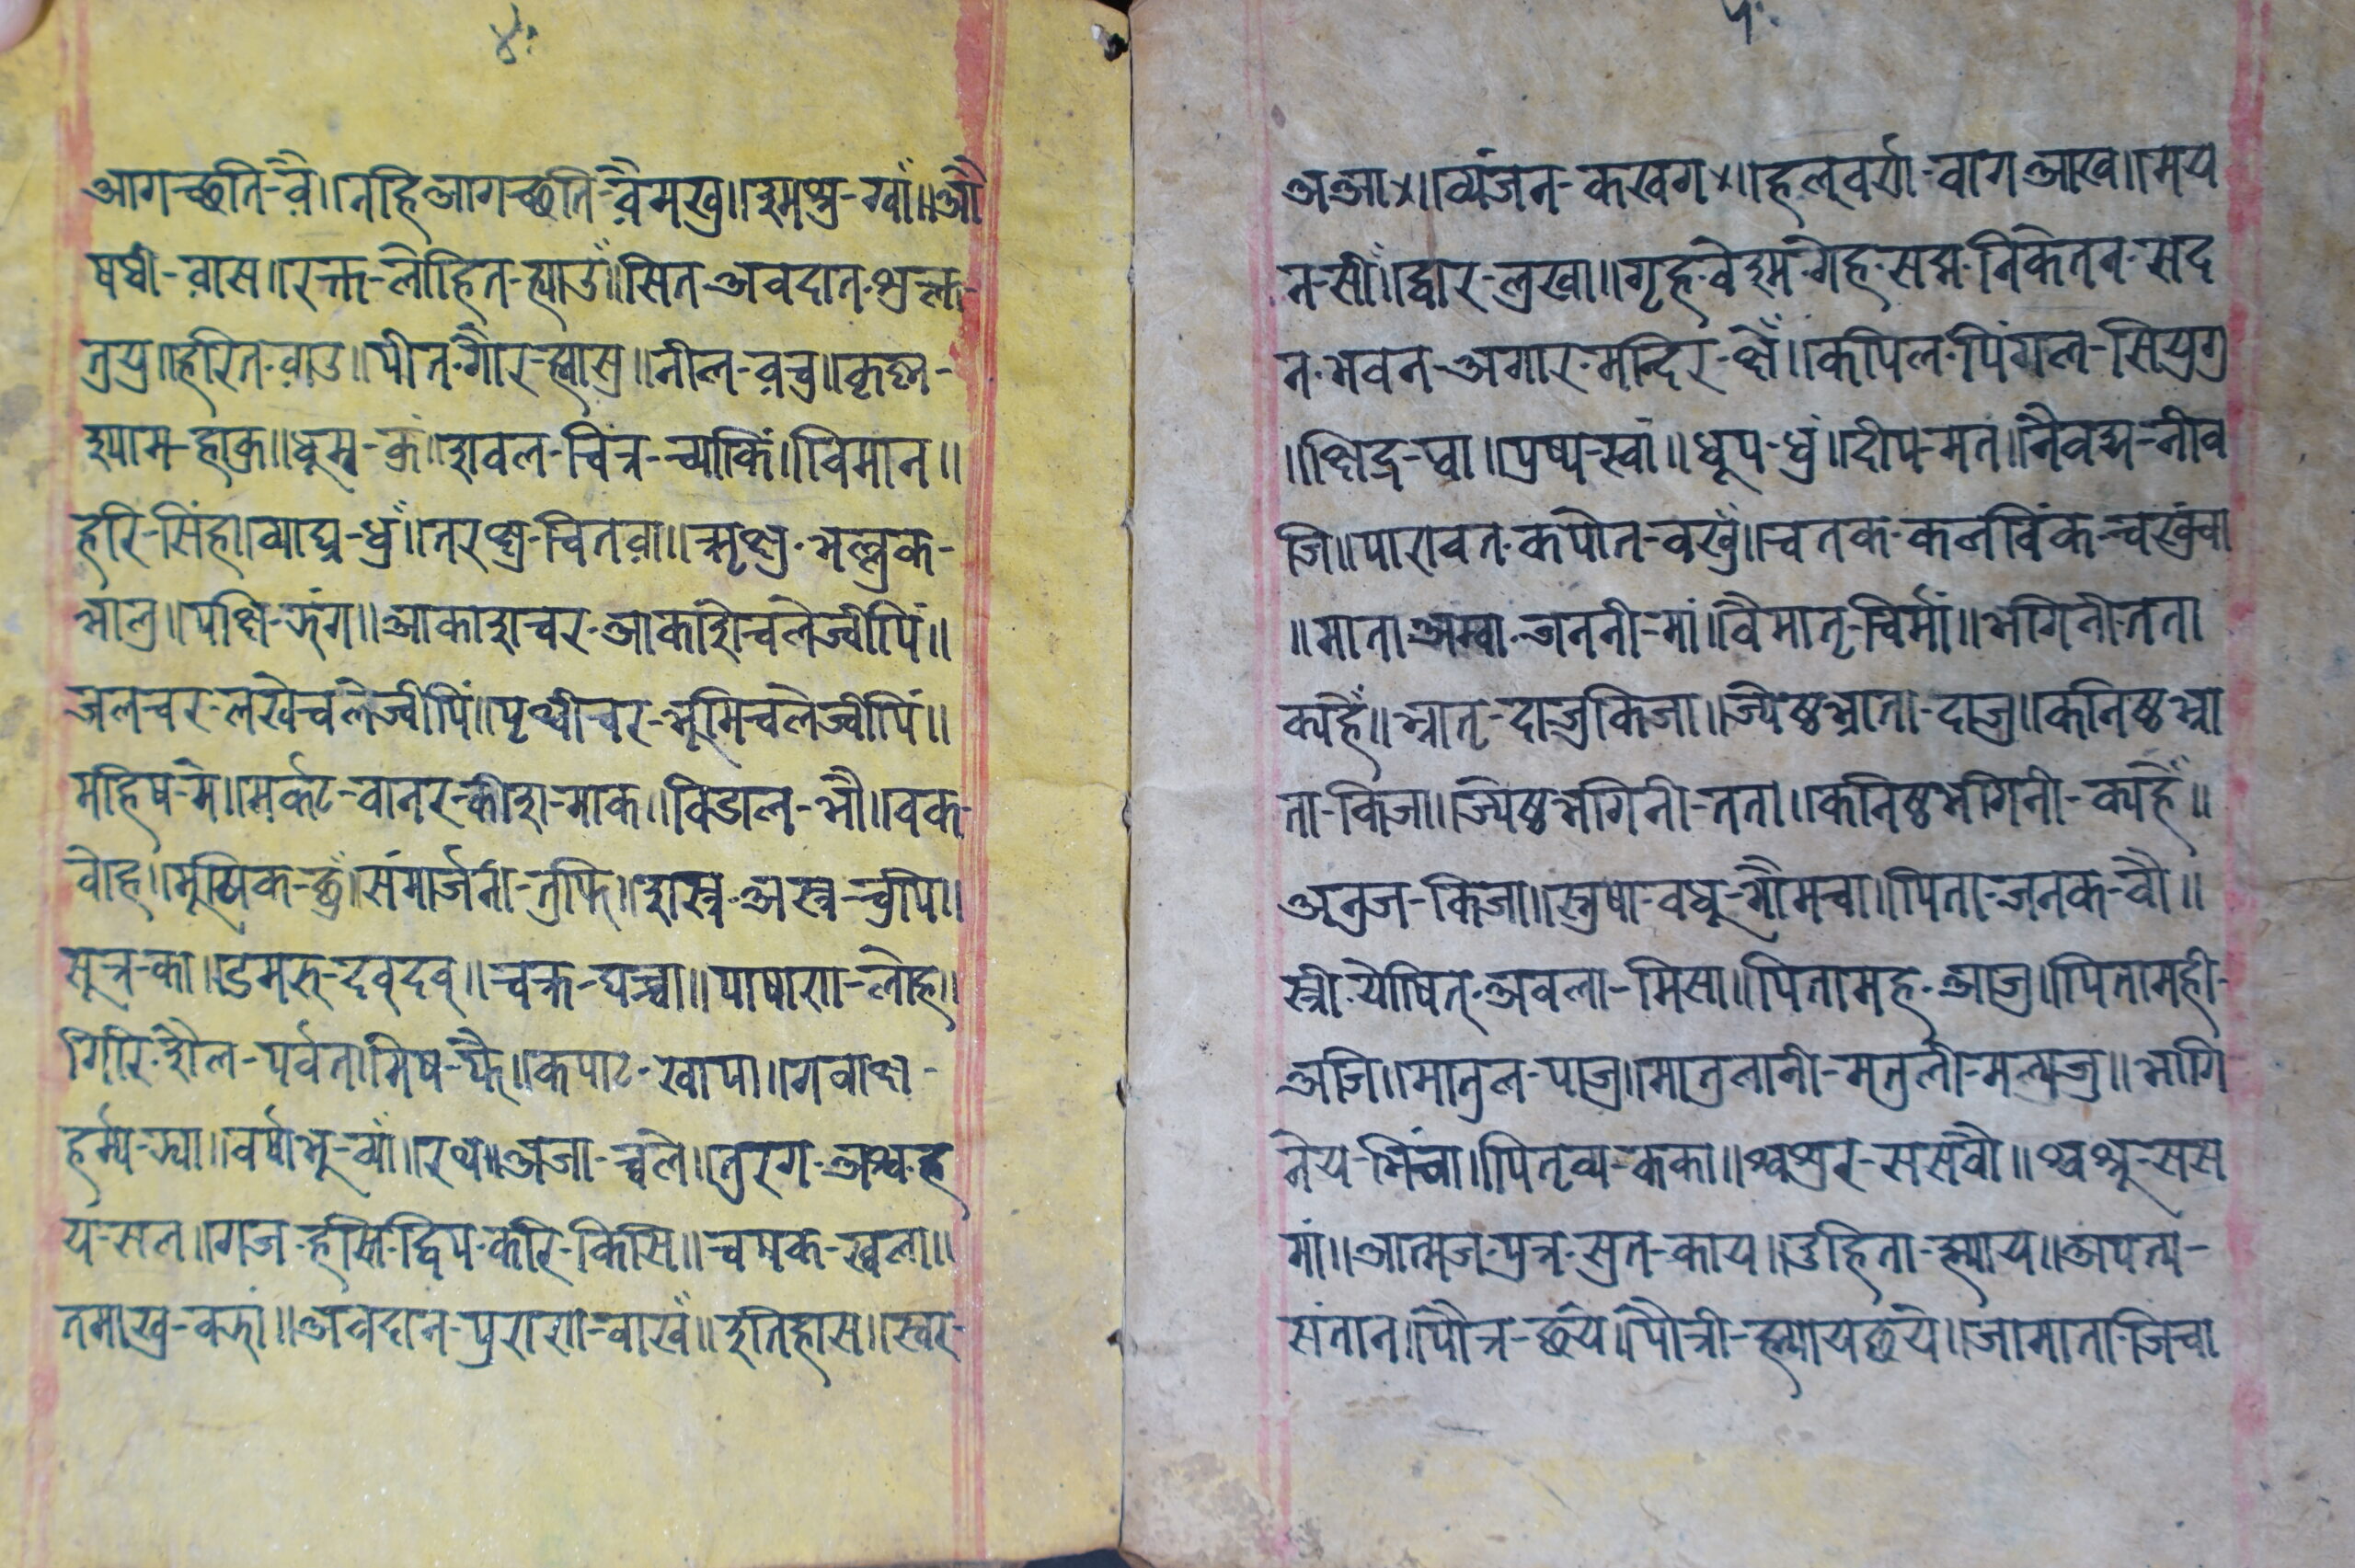 ४ः
आगच्छति-वै॥नहिआगच्छति-वैमखु॥श्मश्रु-ग्वाँ॥औ
षधी-वास॥रक्त-लोहित-ह्याउँ॥सित-अवदात-शुक्ल-
तुयु॥हरित-वाउ॥पीत-गौर-ह्मासु॥नील-वचु॥कृष्ण-
श्याम-हाकु॥धूम्र-कुं॥शवल-चित्र-च्याकिं॥विमान॥
हरि-सिंह॥व्याघ्र-धुँ॥तरक्षु-चितवा॥ऋक्ष-भल्लुक-
भालु॥पक्षि-झंग॥आकाशचर-आकाशेचलेज्वीपिं॥
जलचर-लखेचलेज्वीपिं॥पृथ्वीचर-भूमिचलेज्वीपिं॥
महिष-मे॥मर्कट-वानर-कीश-माक॥विडाल-भौ॥वक-
वोह॥मूषिक-छुँ॥संमार्जनी-तुफि॥शस्त्र-अस्त्र-चुपि॥
सूत्र-का॥डमरु-दव्दव्॥चक्र-घच्चा॥पाषाण-लोह॥
गिरि-शैल-पर्वत॥मिष-फै॥कपाट-खापा॥गवाक्ष-
हर्म्य-झ्या॥वर्षाभू-व्याँ॥रथ॥अजा-च्वले॥तुरग-अश्व-ह
य-सल॥गज-हस्ति-द्विप-करि-किसि॥चषक-ख्वला॥
तमाखु-वझां॥अवदान-पुराण-वाखँ॥इतिहास॥स्वर-
५ः
अआ४॥व्यंजन-कखग४॥हलवर्ण-वागआख॥मय
न-सीँ॥द्वार-लुखा॥गृह-वेश्म-गेह-सद्म-निकेतन-सद
न-भवन-अगार-मन्दिर-छेँ॥कपिल-पिंगल-सियुगु
॥छिद्र-प्वा॥पुष्प-स्वां॥धूप-धुं॥दीप-मत॥नैवद्य-नीव
जि॥पारावत-कपोत-वखुँ॥चतक-कलविंक-चखुंचा
॥माता-अम्वा-जननी-मां॥वैमातृ-चिर्मां॥भगिनी-तता
क्यहेँ॥भ्रातृ-दाजुकिजा॥ज्येष्ठभ्राता-दाजु॥कनिष्ठभ्रा
ता-किजा॥ज्येष्ठभगिनी-तता॥कनिष्ठभगिनी-क्यहेँ॥
अनुज-किजा॥स्नुषा-वधू-भौमचा॥पिता-जनक-वौ॥
स्त्री-योषित्-अवला-मिसा॥पितामह-आजु॥पितामही-
अजि॥मातुल-पाजु॥मातुलानी-मतुली-मल्यजु॥भागि
नेय-भिंचा॥पितृव्य-कका॥श्वशुर-ससवौ॥श्वश्रू-सस
मां॥आत्मज-पुत्र-सुत-काय॥दुहिता-ह्म्याय॥अपत्य-
संतान॥पौत्र-छये॥पौत्री-ह्म्यायछये॥जामाता-जिचा